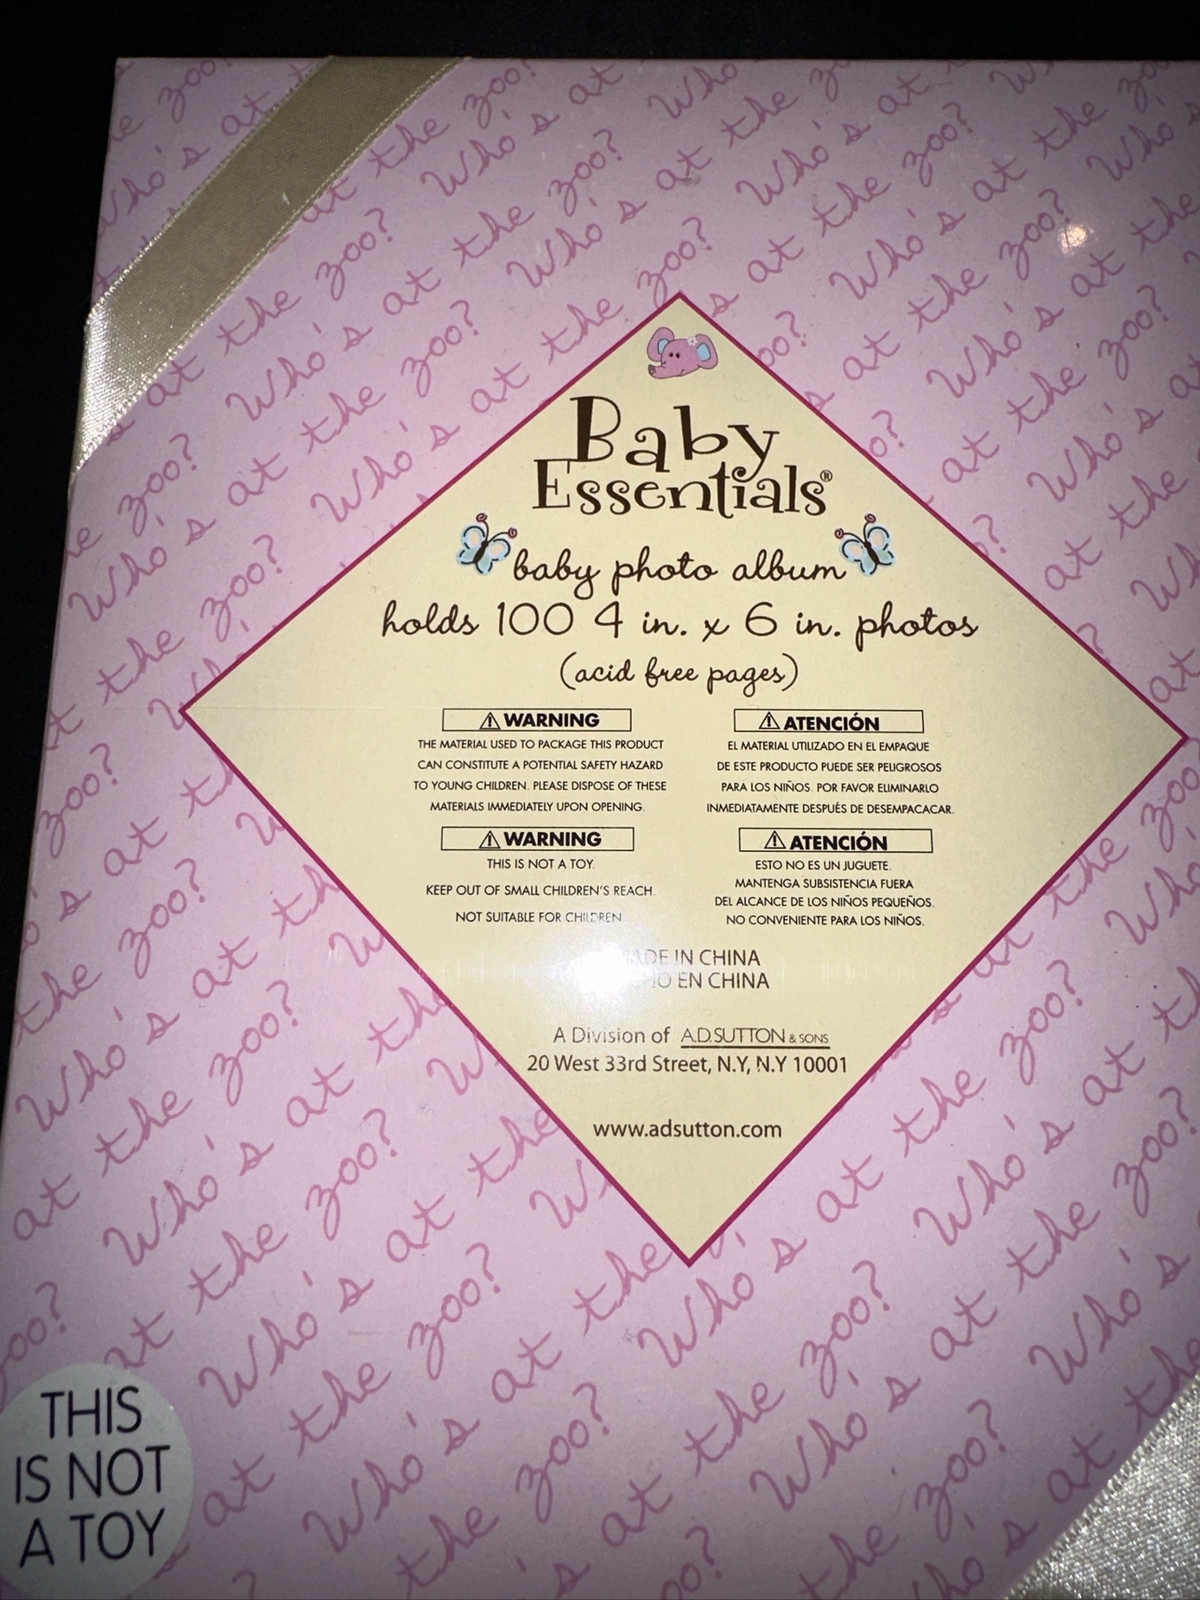 Baby
Essentials®
baby photo album
holds 100 4 in. x 6 in. photos
(acid free pages)
⚠ WARNING
THE MATERIAL USED TO PACKAGE THIS PRODUCT
CAN CONSTITUTE A POTENTIAL SAFETY HAZARD
TO YOUNG CHILDREN. PLEASE DISPOSE OF THESE
MATERIALS IMMEDIATELY UPON OPENING.
⚠ ATENCIÓN
EL MATERIAL UTILIZADO EN EL EMPAQUE
DE ESTE PRODUCTO PUEDE SER PELIGROSOS
PARA LOS NIÑOS. POR FAVOR ELIMINARLO
INMEDIATAMENTE DESPUÉS DE DESEMPACACAR.
⚠ WARNING
THIS IS NOT A TOY.
KEEP OUT OF SMALL CHILDREN'S REACH.
NOT SUITABLE FOR CHILDREN
⚠ ATENCIÓN
ESTO NO ES UN JUGUETE.
MANTENGA SUBSISTENCIA FUERA
DEL ALCANCE DE LOS NIÑOS PEQUEÑOS.
NO CONVENIENTE PARA LOS NIÑOS.
MADE IN CHINA
EN CHINA
A Division of A.D.SUTTON & SONS
20 West 33rd Street, N.Y, N.Y 10001
www.adsutton.com
THIS
IS NOT
A TOY
Who's at the zoo?